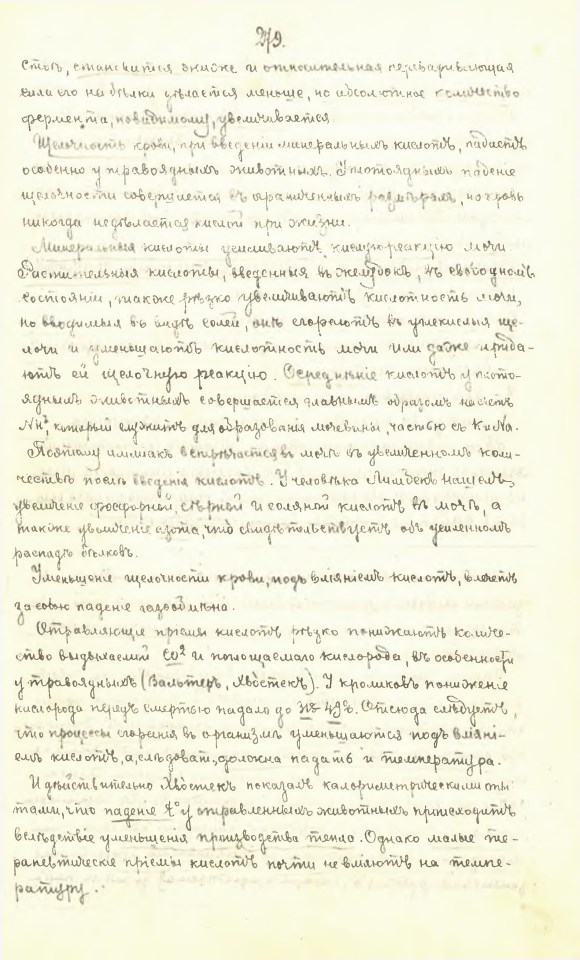 279.
стоъ, становится ниже и относительная переваривающая
сила его на бѣлки дѣлается меньше, но абсолютное количество
фермента, повидимому, увеличивается
Щелочность крови, при введеніи минеральныхъ кислотъ, падаетъ
особенно у травоядныхъ животныхъ. У плотоядныхъ паденіе
щелочности совершается въ ограниченныхъ размѣрахъ, но кровь
никогда не дѣлается кислой при жизни.
Минеральныя кислоты усиливаютъ кислую реакцію мочи
Растительныя кислоты, введенныя въ желудокъ, въ свободномъ
состояніи, также рѣзко увеличиваютъ кислотность мочи,
но вводимыя въ видѣ солей, онѣ сгораютъ въ углекислыя ще-
лочи и уменьшаютъ кислотность мочи или даже прида-
ютъ ей щелочную реакцію. Осредненіе кислотъ у плото-
ядныхъ животныхъ совершается главнымъ образомъ насчетъ
NH³, который служитъ для образованія мочевины, частью съ K и Na.
Поэтому амміакъ встрѣчается въ мочѣ въ увеличенномъ коли-
чествѣ послѣ введенія кислотъ. У человѣка Лимбекъ нашелъ
увеличеніе фосфорной, сѣрной и соляной кислотъ въ мочѣ, а
также увеличеніе азота, что свидѣтельствуетъ объ усиленномъ
распадѣ бѣлковъ.
Уменьшеніе щелочности крови, подъ вліяніемъ кислотъ, влечетъ
за собою паденіе газообмѣна.
Отравляющіе пріемы кислотъ рѣзко понижаютъ количе-
ство выдыхаемой CO² и поглощаемаго кислорода, въ особенности
у травоядныхъ (Вальтеръ, Хвостекъ). У кроликовъ пониженіе
кислорода передъ смертью падало до Отсюда слѣдуетъ,
что процессы сгоранія въ организмѣ уменьшаются подъ вліяні-
емъ кислотъ, а, слѣдоват, должна падать и температура.
И дѣйствительно Хвостекъ показалъ калориметрическими опы
тами, что паденіе t° у отравленныхъ животныхъ происходитъ
вслѣдствіе уменьшенія производства тепла. Однако малые те-
рапевтическіе пріемы кислотъ почти не вліяютъ на темпе-
ратуру.